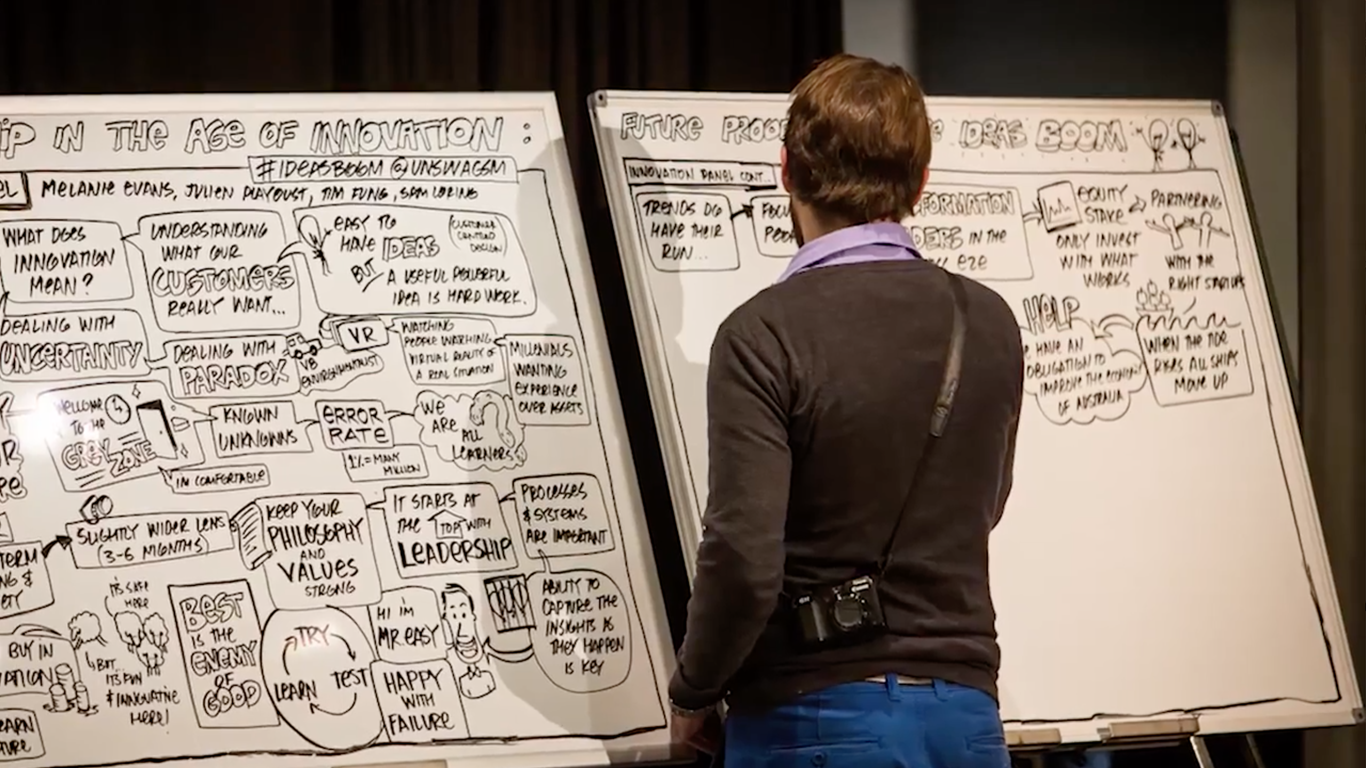 IN THE AGE OF INNOVATION :
#IDEASBOOM @UNSWAGSM
MELANIE EVANS, JULIEN PLAYOUST, TIM FUNG, SAM LORING
WHAT DOES
INNOVATION
MEAN?
UNDERSTANDING
WHAT OUR
CUSTOMERS
REALLY WANT...
EASY TO
HAVE IDEAS
BUT
(CUSTOMER
CENTRED
DESIGN)
A USEFUL POWERFUL
IDEA IS HARD WORK.
DEALING WITH
UNCERTAINTY
DEALING WITH
PARADOX
VS
ENVIRONMENTALIST
VR
WATCHING
PEOPLE WATCHING
VIRTUAL REALITY OF
A REAL SITUATION
MILLENIALS
WANTING
EXPERIENCE
OVER ASSETS
WELCOME
TO THE
GREY
ZONE
KNOWN
UNKNOWNS
ERROR
RATE
1% = MANY
MILLION
WE
ARE
ALL
LEARNERS
IN COMFORTABLE
SLIGHTLY WIDER LENS
(3-6 MONTHS)
KEEP YOUR
PHILOSOPHY
AND
VALUES
STRONG
IT STARTS AT
THE TOP WITH
LEADERSHIP
PROCESSES
& SYSTEMS
ARE IMPORTANT
TERM
BUY IN
IT'S SAFE
HERE
BUT
IT'S FUN
& INNOVATIVE
HERE!
BEST
IS THE
ENEMY
OF
GOOD
TRY
TEST
LEARN
HI I'M
MR. EASY
HAPPY
WITH
FAILURE
ABILITY TO
CAPTURE THE
INSIGHTS AS
THEY HAPPEN
IS KEY
FUTURE PROO
IDEAS BOOM
INNOVATION PANEL CONT...
TRENDS DO
HAVE THEIR
RUN...
FORMATION
IN THE
EQUITY
STAKE
ONLY INVEST
WITH WHAT
WORKS
PARTNERING
WITH THE
RIGHT STARTUPS
HELP
HAVE AN
OBLIGATION TO
IMPROVE THE ECONOMY
OF AUSTRALIA
WHEN THE TIDE
RISES ALL SHIPS
MOVE UP